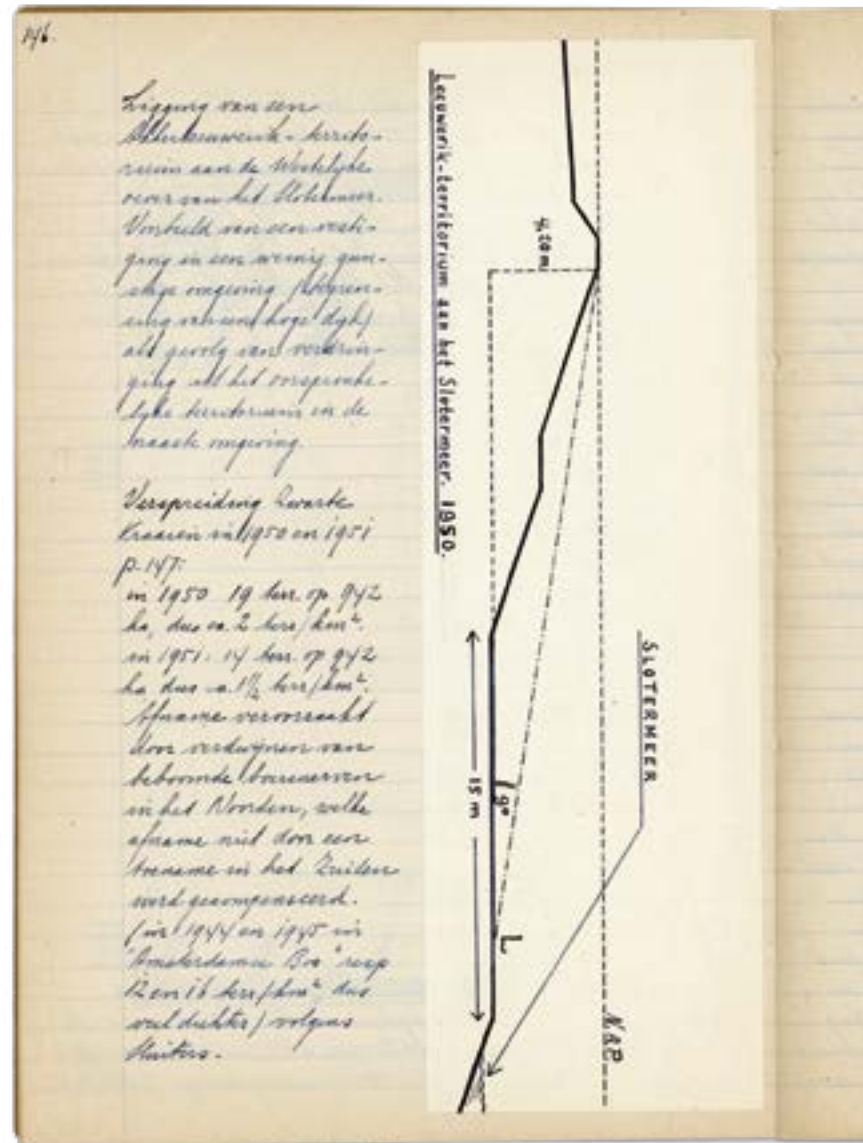 146.
Ligging van een
Veldleeuwerik-territo-
rium aan de Westelijke
oever van het Slotermeer.
Voorbeeld van een vesti-
ging in een weinig gun-
stige omgeving (begren-
zing van een hoge dijk)
als gevolg van verdrin-
ging uit het oorspronke-
lijke territorium in de
naaste omgeving.
Verspreiding Zwarte
Kraaien in 1950 en 1951
p. 147:
in 1950 19 terr. op 942
ha, dus ca. 2 terr/km².
in 1951: 14 terr. op 942
ha, dus ca. 1½ terr/km².
Afname veroorzaakt
door verdwijnen van
beboomde boerenerven
in het Noorden, welke
afname niet door een
toename in het Zuiden
werd gecompenseerd.
(in 1944 en 1945 in
"Amsterdamse Bos" resp
12 en 16 terr/km², dus
veel dichter) volgens
Sluiters.
Leeuwerik-territorium aan het Slotermeer. 1950.
20 m
15 m
9°
L
SLOTERMEER
NAP